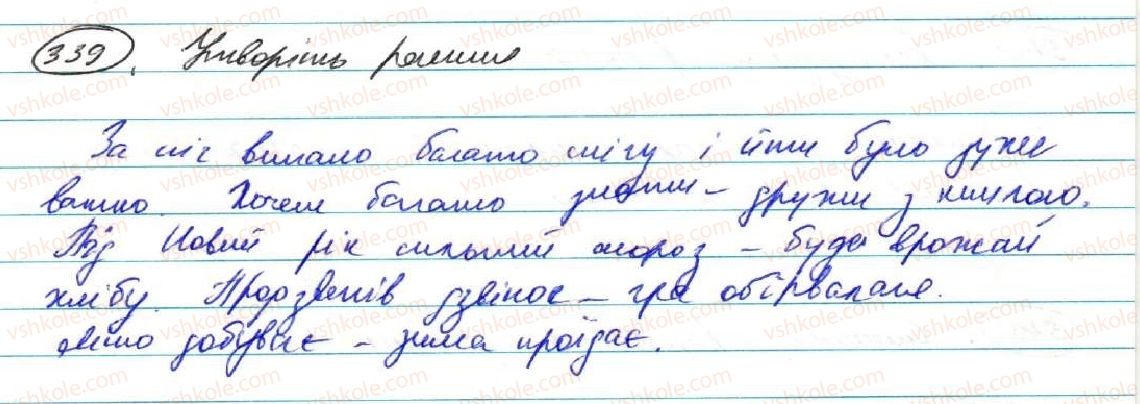 339. Утворіть речення
За ніч випало багато снігу і йти було дуже
важко. Хочеш багато знати – дружи з книгою.
Під Новий рік сильний мороз – буде врожай
хлібу. Продзвенів дзвінок – гра обірвалася.
Літо добуває – зима проїдає.